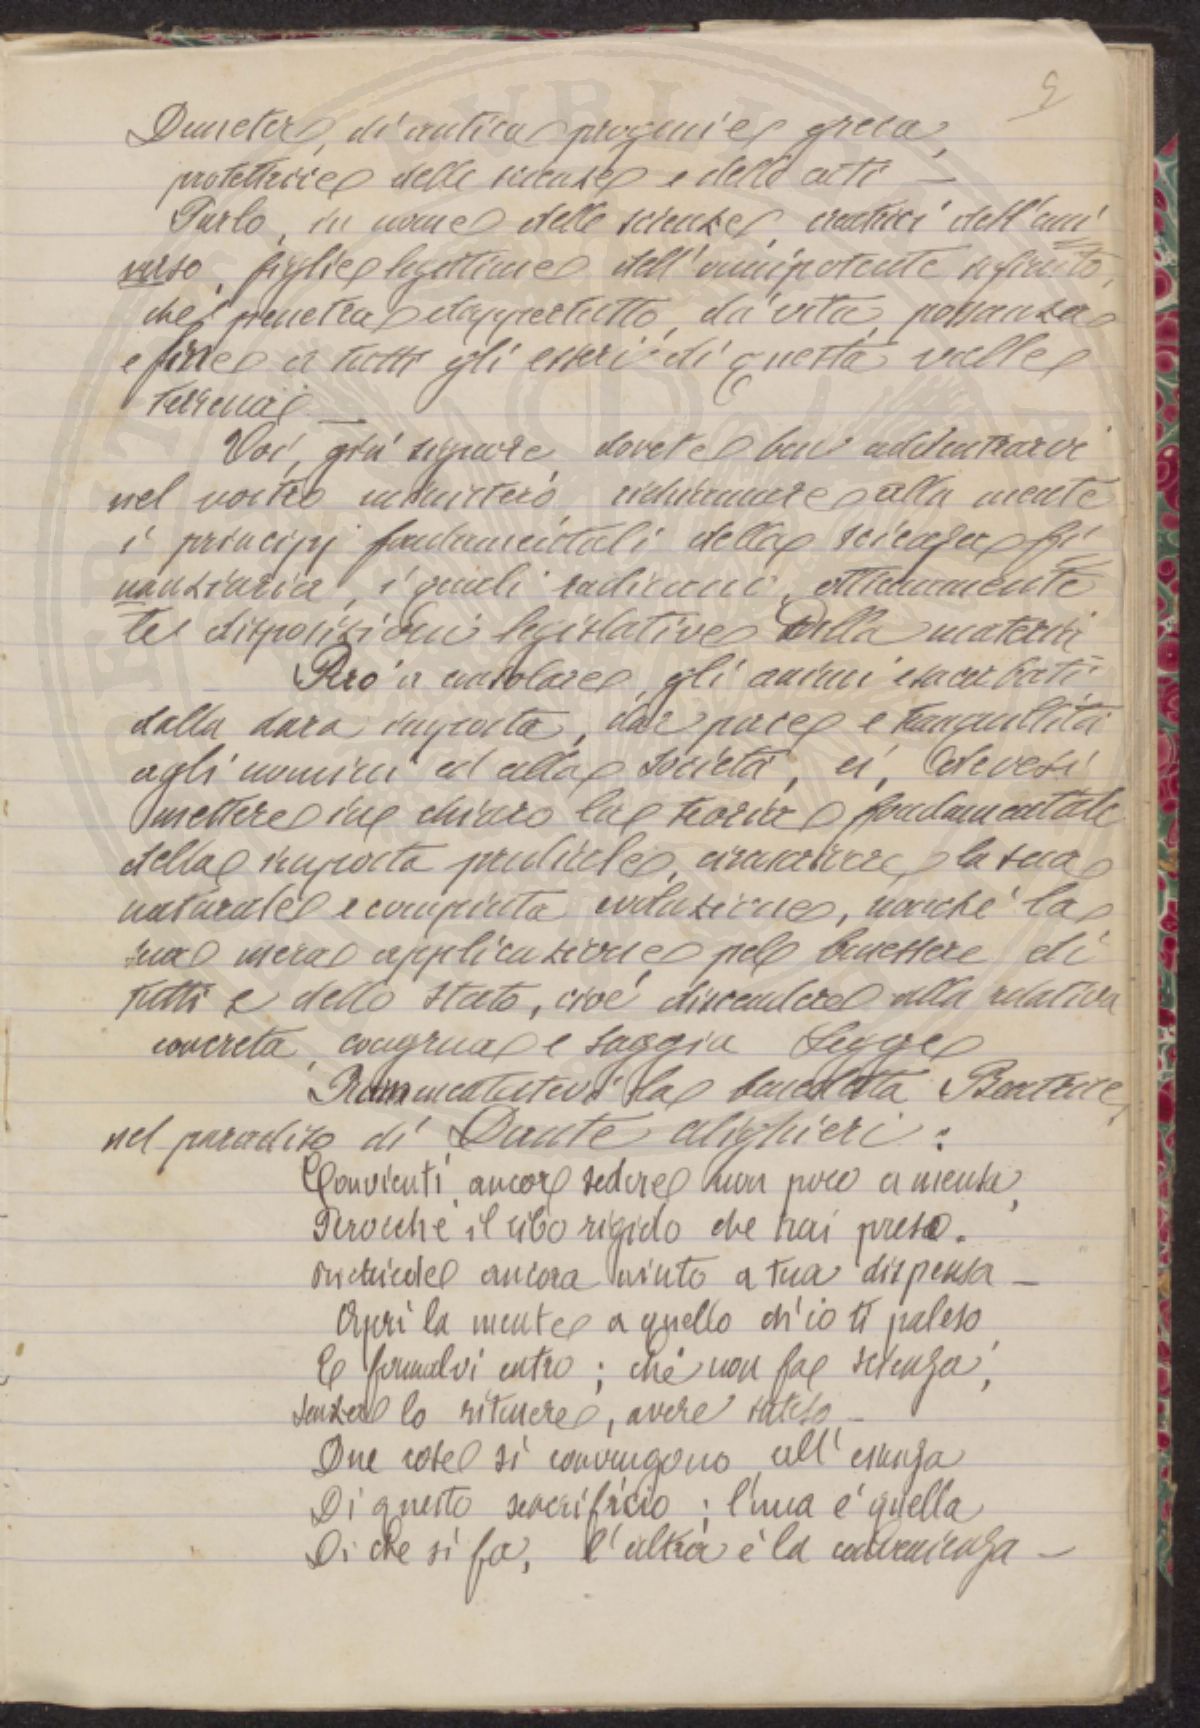 9
Demeter, di antica progenie greca,
protettrice delle scienze e delle arti —
Parlo, in nome delle scienze, creatrici dell'uni
verso, figlie legittime dell'omnipotente infinito,
che penetra dappertutto, dà vita, possanza
e fine a tutti gli esseri di questa valle
terrena —
Voi, giù signore, dovete ben addentrarvi
nel vostro ministero, richiamare alla mente
i principj fondamentali della scienza fi
nanziaria, i quali radicano ottimamente
le disposizioni legislative della materia
Però a consolare, gli animi esacerbati
dalla dura imposta, dar pace e tranquillità
agli uomini ed alla società, ei, devesi
mettere in chiaro la teoria fondamentale
della imposta prediale, enunciare la sua
naturale e compiuta evoluzione, nonchè la
sua mera applicazione pel benessere di
tutti e dello stato, cioè discendere alla relativa
concreta, congrua e saggia Legge
Rammentatevi la benedetta Beatrice,
nel paradiso di Dante alighieri:
Convienti ancor sedere non poco a mensa,
Perocchè il cibo rigido che hai preso.
richiede ancora aiuto a tua dispensa —
Apri la mente a quello ch'io ti paleso
E fermalvi entro; chè non fa scienza,
senza lo ritenere, avere inteso —
Due cose si convengono all'essenza
Di questo sacrificio; l'una è quella
Di che si fa, l'altra è la convenienza —